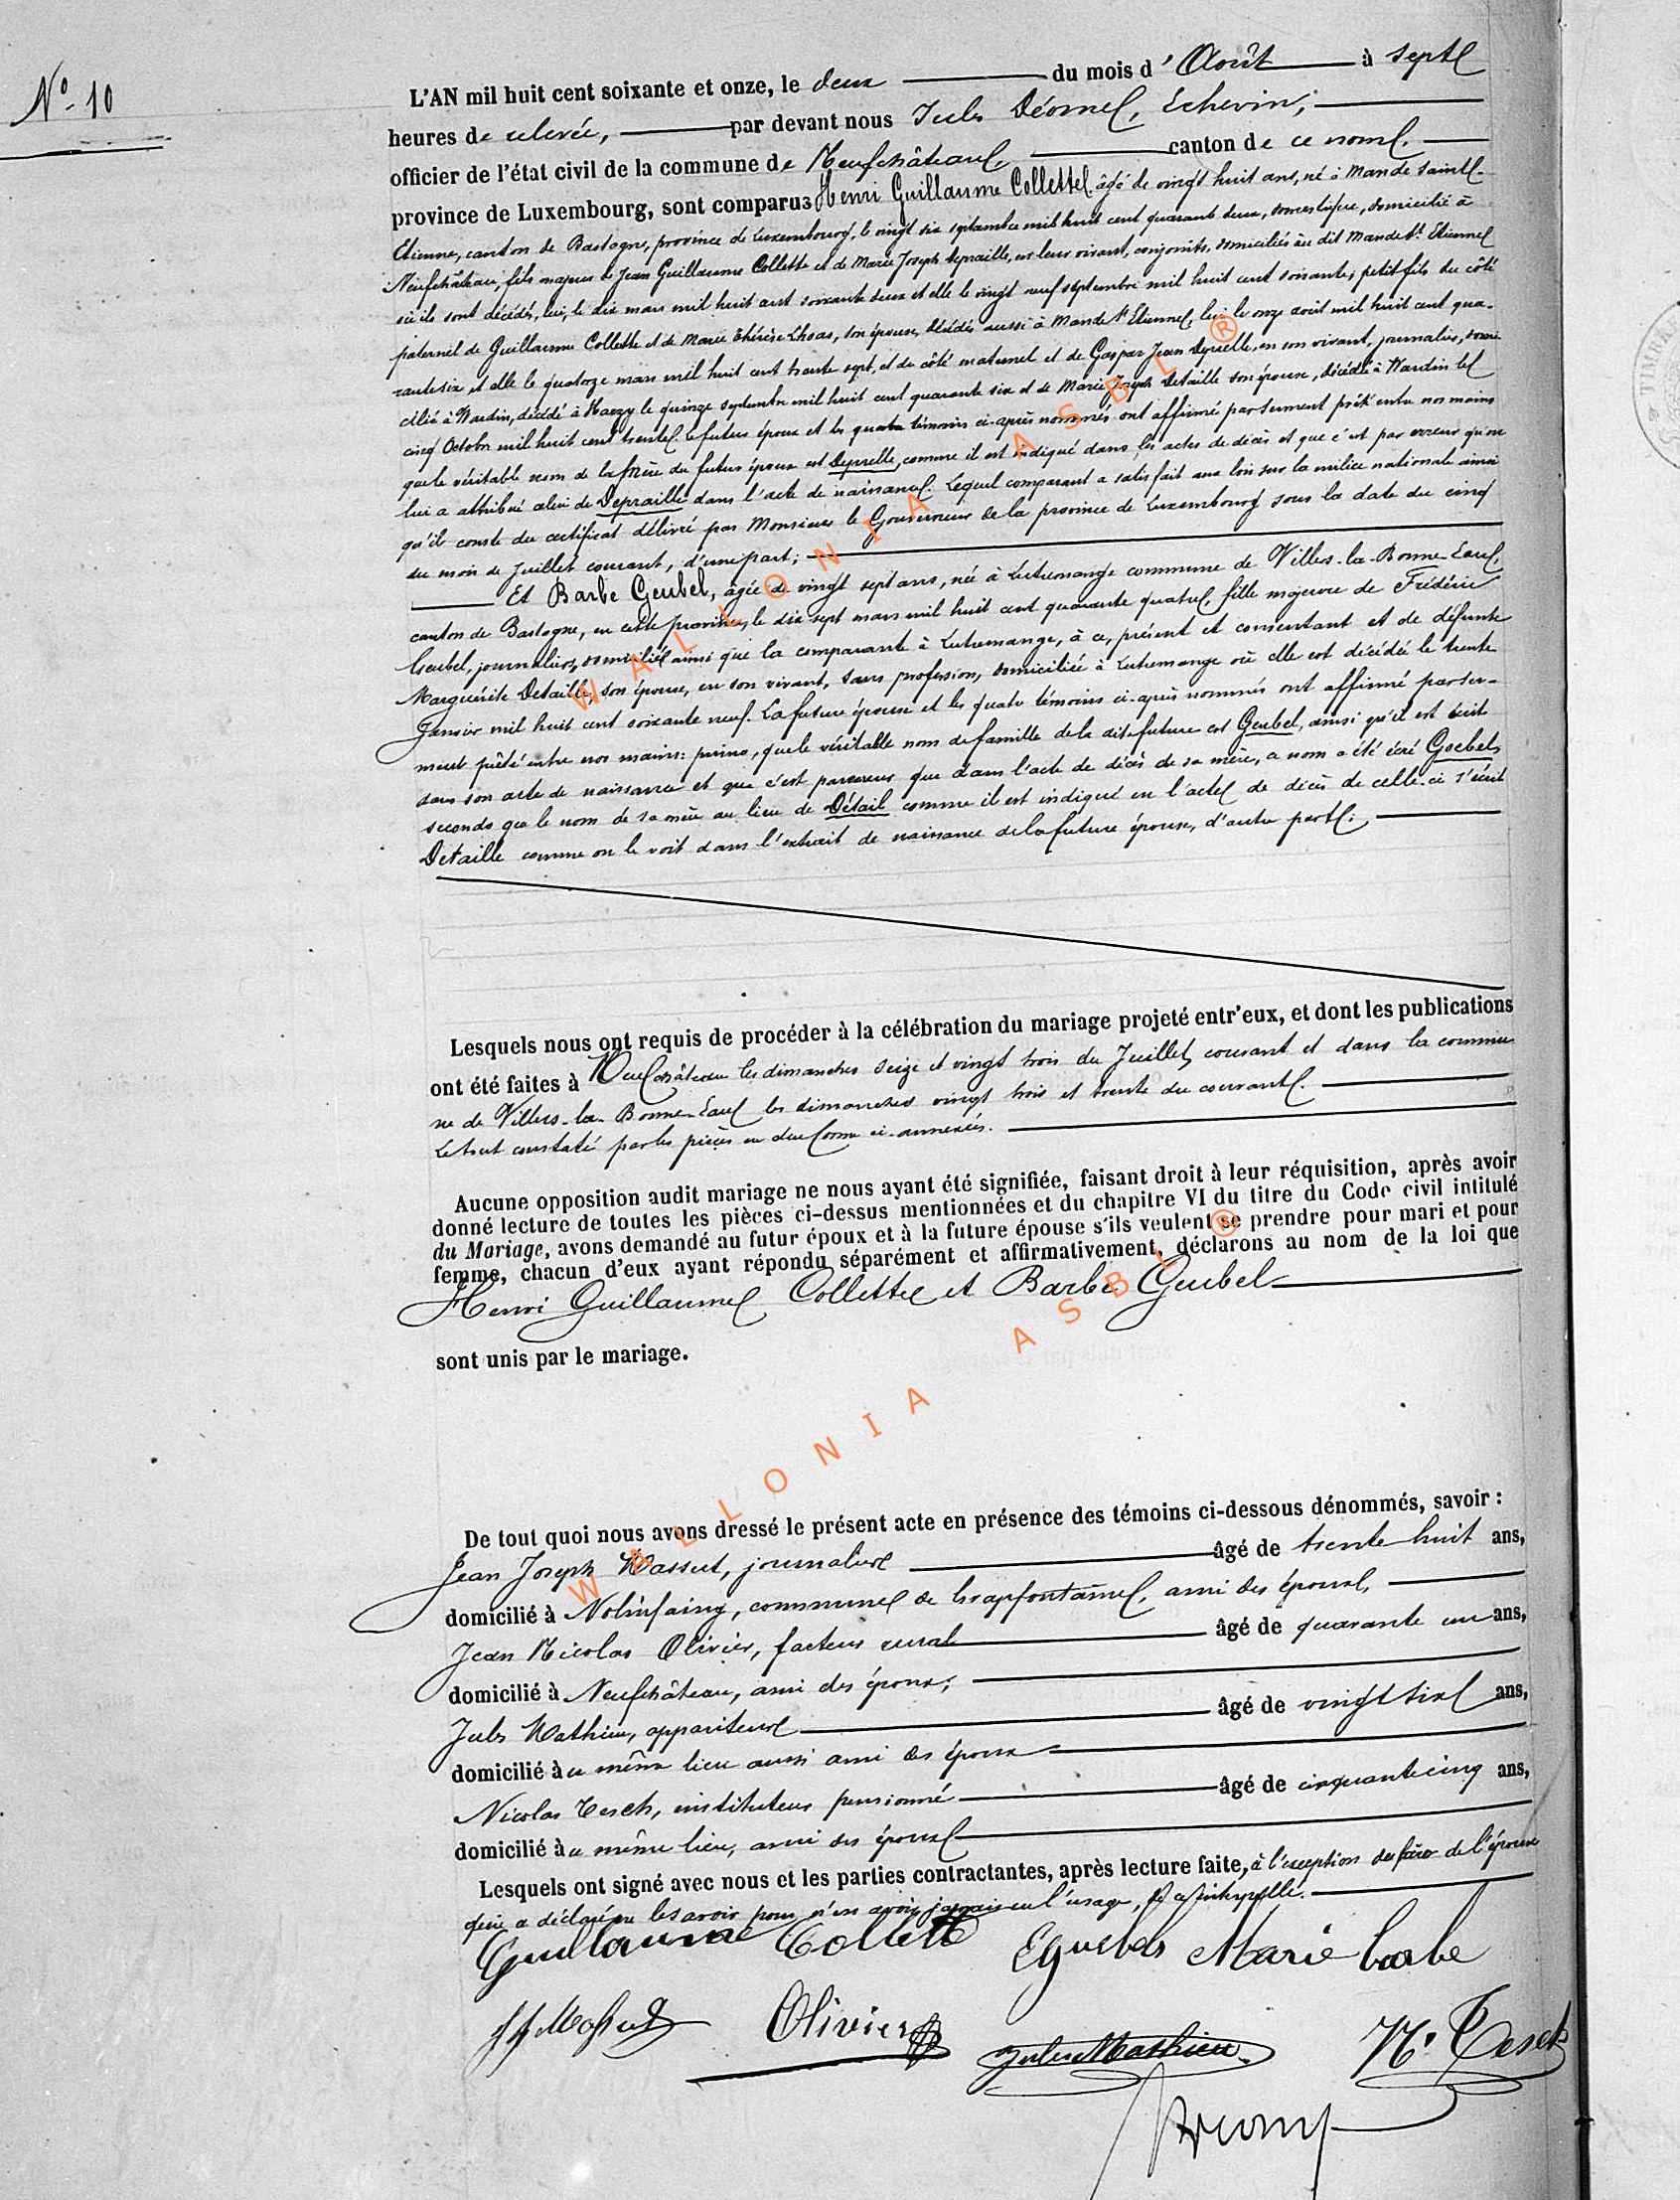 N° 10
L'AN mil huit cent soixante et onze, le deux du mois d'Août à sept
heures de relevée, par devant nous Jules Déome, Echevin,
officier de l'état civil de la commune de Neufchâteau, canton de ce nom,
province de Luxembourg, sont comparus Henri Guillaume Collette âgé de vingt huit ans, né à Mande Saint
Etienne, canton de Bastogne, province de Luxembourg, le vingt six septembre mil huit cent quarante deux, domestique, domicilié à
Neufchâteau, fils majeur de Jean Guillaume Collette et de Marie Joseph Depraille, en leur vivant, conjoints, domiciliés au dit Mande St Etienne
où ils sont décédés, lui, le dix mars mil huit cent soixante deux et elle le vingt neuf septembre mil huit cent soixante; petit fils du côté
paternel de Guillaume Collette et de Marie Thérèse Lhoas, son épouse, décédés aussi à Mande St Etienne, lui le onze août mil huit cent qua-
rante six et elle le quatorze mars mil huit cent trente sept, et du côté maternel et de Gaspar Jean Deprelle, en son vivant, journalier, domi-
cilié à Wardin, décédé à Harzy le quinze septembre mil huit cent quarante six et de Marie Joseph Detaille son épouse, décédée à Wardin le
cinq Octobre mil huit cent trente. Le futur époux et les quatre témoins ci-après nommés ont affirmé par serment prêté entre nos mains
que le véritable nom de la mère du futur époux est Deprelle, comme il est indiqué dans les actes de décès et que c'est par erreur qu'on
lui a attribué celui de Depraille dans l'acte de naissance. Lequel comparant a satisfait aux lois sur la milice nationale ainsi
qu'il conste du certificat délivré par Monsieur le Gouverneur de la province de Luxembourg sous la date du cinq
du mois de Juillet courant, d'une part;
Et Barbe Geubel, âgée de vingt sept ans, née à Lutremange commune de Villers-la-Bonne-Eau,
canton de Bastogne, en cette province, le dix sept mars mil huit cent quarante quatre, fille majeure de Frédéric
Geubel, journalier, domicilié ainsi que la comparante à Lutremange, à ce, présent et consentant et de défunte
Marguérite Detaille, son épouse, en son vivant, sans profession, domiciliée à Lutremange où elle est décédée le trente
Janvier mil huit cent soixante neuf. La future épouse et les quatre témoins ci-après nommés ont affirmé par ser-
ment prêté entre nos mains: primo, que le véritable nom de famille de la dite future est Geubel, ainsi qu'il est écrit
dans son acte de naissance et que c'est par erreur que dans l'acte de décès de sa mère, ce nom a été écrit Goebel,
secundo que le nom de sa mère au lieu de Détail comme il est indiqué en l'acte de décès de celle-ci s'écrit
Detaille comme on le voit dans l'extrait de naissance de la future épouse, d'autre part.
Lesquels nous ont requis de procéder à la célébration du mariage projeté entr'eux, et dont les publications
ont été faites à Neufchâteau les dimanches seize et vingt trois du Juillet courant et dans la commu
ne de Villers-la-Bonne-Eau les dimanches vingt trois et trente du courant.
Le tout constaté par les pièces en due forme ci-annexées.
Aucune opposition audit mariage ne nous ayant été signifiée, faisant droit à leur réquisition, après avoir
donné lecture de toutes les pièces ci-dessus mentionnées et du chapitre VI du titre du Code civil intitulé
du Mariage, avons demandé au futur époux et à la future épouse s'ils veulent se prendre pour mari et pour
femme, chacun d'eux ayant répondu séparément et affirmativement, déclarons au nom de la loi que
Henri Guillaume Collette et Barbe Geubel
sont unis par le mariage.
De tout quoi nous avons dressé le présent acte en présence des témoins ci-dessous dénommés, savoir :
Jean Joseph Massut, journalier âgé de trente huit ans,
domicilié à Nolinfaing, commune de Grapfontaine, ami des époux,
Jean Nicolas Olivier, facteur rural âgé de quarante un ans,
domicilié à Neufchâteau, ami des époux;
Jules Mathieu, appariteur âgé de vingt six ans,
domicilié à ce même lieu aussi ami des époux
Nicolas Tesch, instituteur pensionné âgé de cinquante cinq ans,
domicilié à ce même lieu, ami des époux
Lesquels ont signé avec nous et les parties contractantes, après lecture faite, à l'exception du père de l'épouse
qui a déclaré ne le savoir pour n'en avoir jamais eu l'usage, de ce interpellé.
Guillaume Collette Eguebels Marie barbe
JJ Massut Olivier Jules Mathieu N. Tesch
WALLONIA ASBL ®
WALLONIA ASBL ®